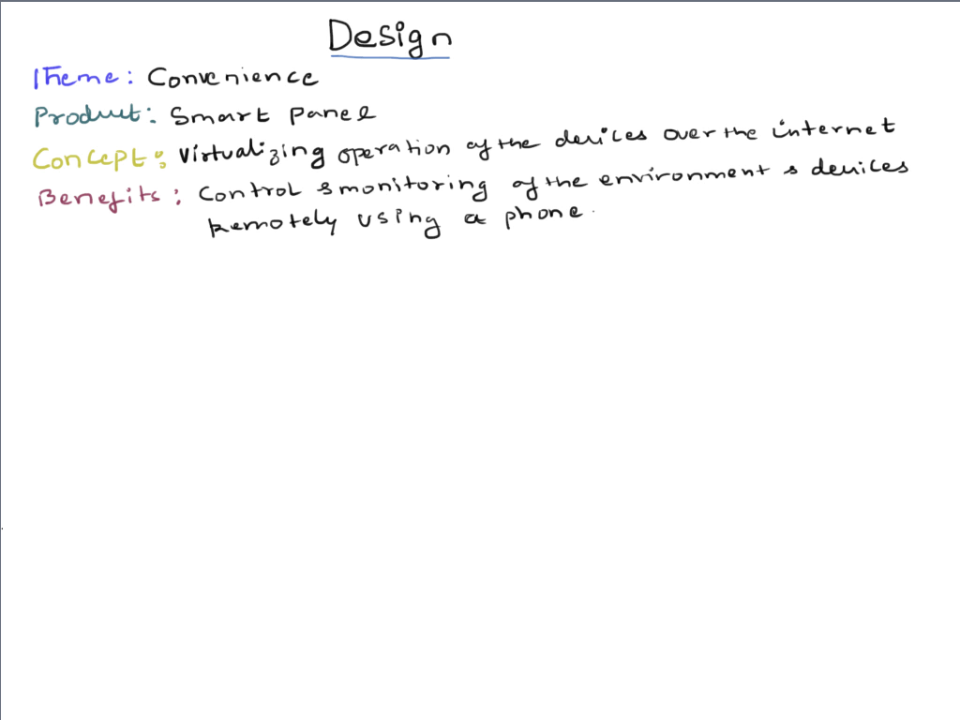 Design
Theme: Convenience
Product: Smart Panel
Concept: Virtualizing operation of the devices over the internet
Benefits: Control & monitoring of the environment & devices
Remotely using a phone.